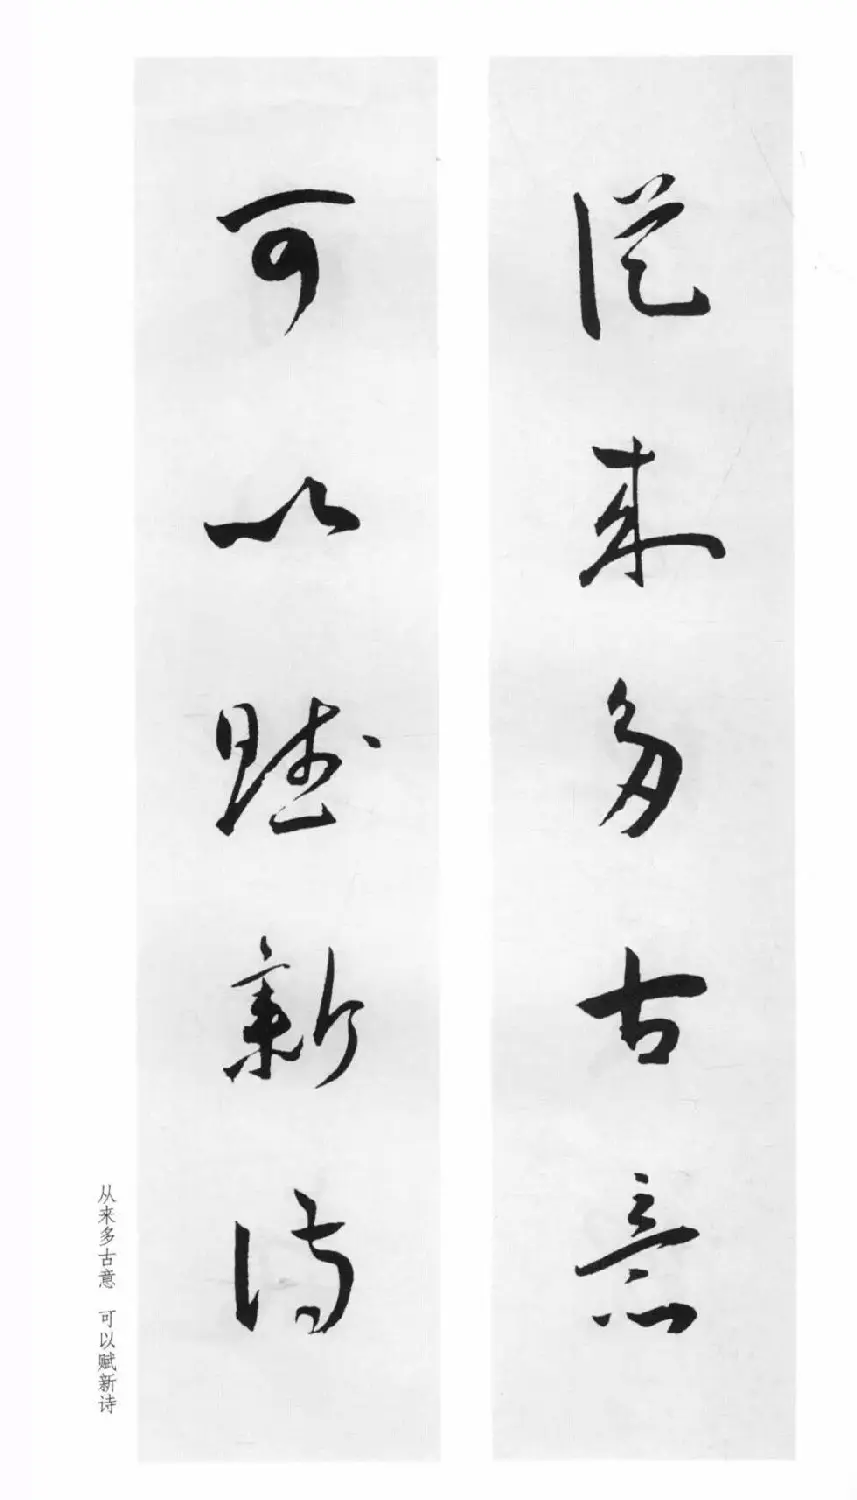 從来多古意
可以賦新詩
从来多古意 可以赋新诗